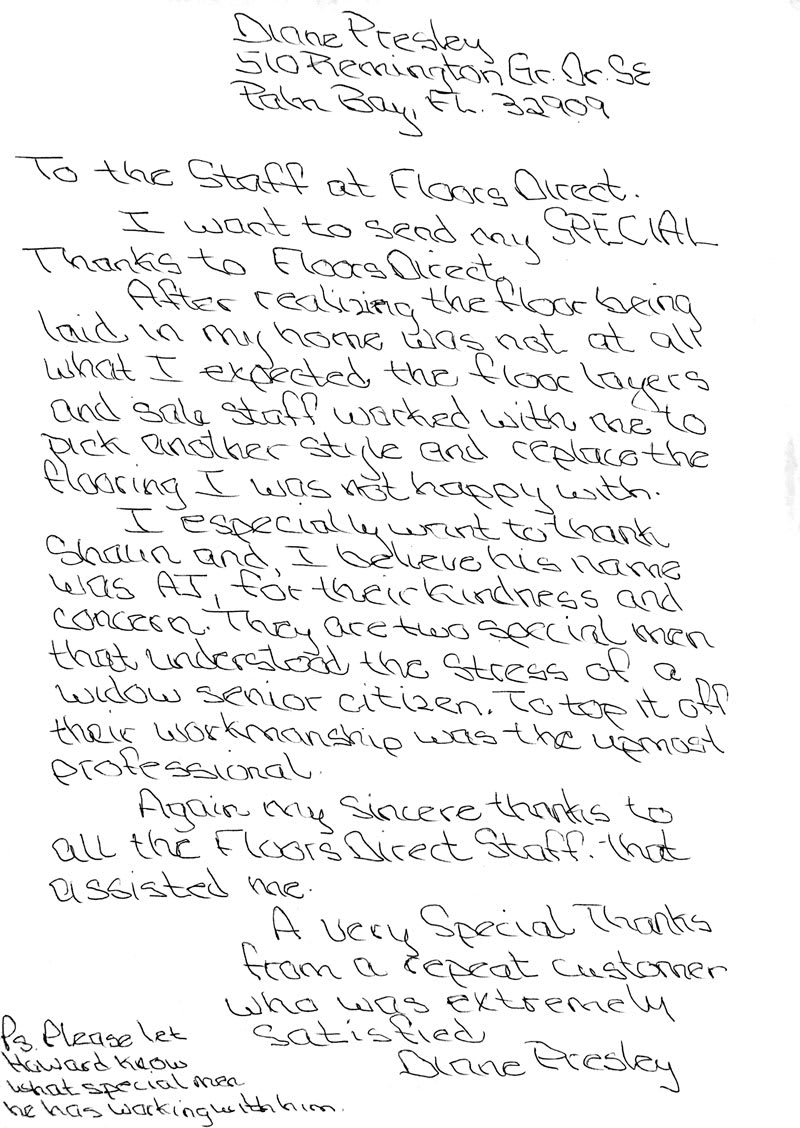 Diane Presley
510 Remington Gr. Dr. SE
Palm Bay, FL. 32909
To the Staff at Floors Direct.
I want to send my SPECIAL
Thanks to Floors Direct.
After realizing the floor being
laid in my home was not at all
what I expected the floor layers
and sale staff worked with me to
pick another style and replace the
flooring I was not happy with.
I especially want to thank
Shaun and, I believe his name
was AJ, for their kindness and
concern. They are two special men
that understood the stress of a
widow senior citizen. To top it off
their workmanship was the upmost
professional.
Again my sincere thanks to
all the Floors Direct Staff. that
assisted me.
A very Special Thanks
from a repeat customer
who was extremely
satisfied
Diane Presley
Ps. Please let
Howard know
what special men
he has working with him.